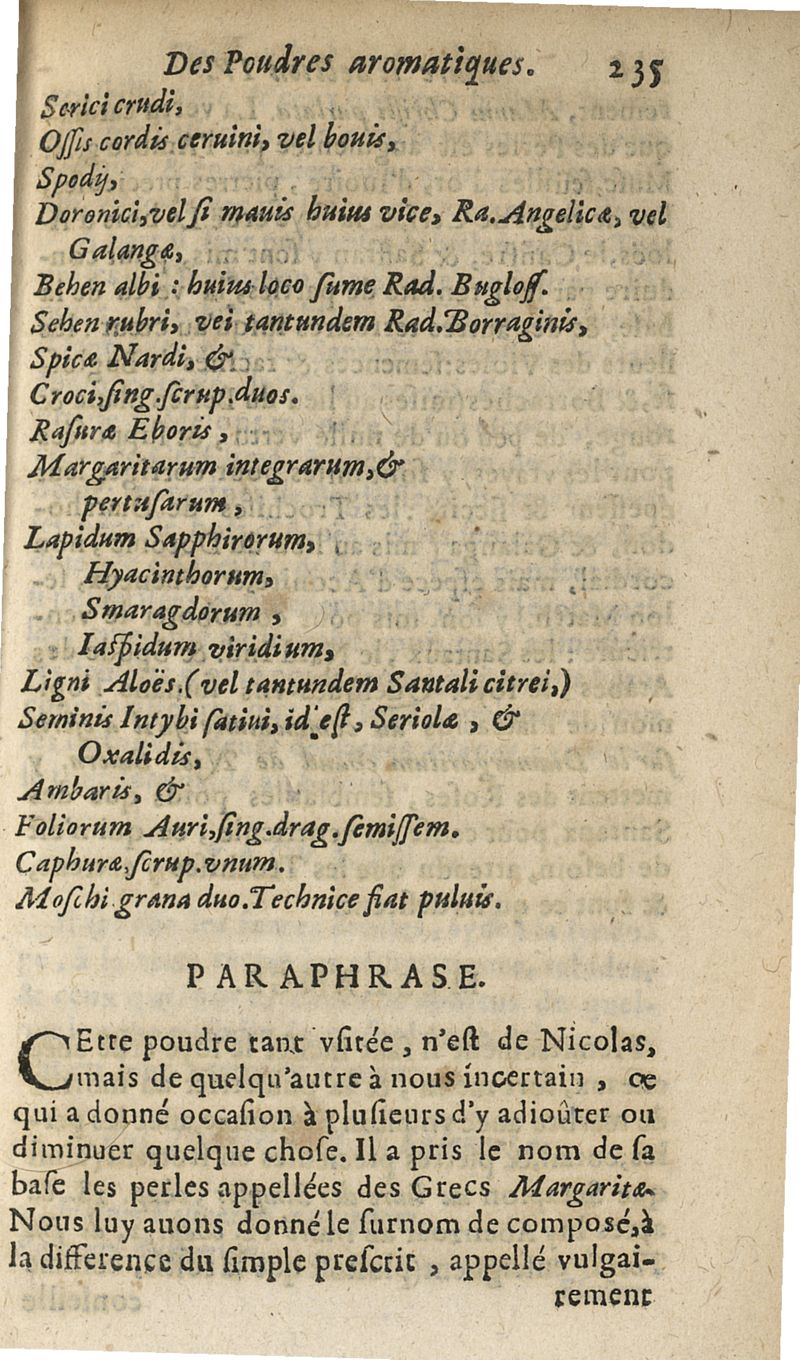 Des Poudres aromatiques. 235
Serici crudi,
Oſſis cordis ceruini, vel bouis,
Spodij,
Doronici, vel ſi mauis huius vice, Ra. Angelicæ, vel
Galangæ,
Behen albi : huius loco ſume Rad. Bugloſſ.
Sehen rubri, vei tantundem Rad. Borraginis,
Spicæ Nardi, &
Croci, ſing. ſcrup. duos.
Raſuræ Eboris,
Margaritarum integrarum, &
pertuſarum,
Lapidum Sapphirorum,
Hyacinthorum,
Smaragdorum,
Iaſpidum viridium,
Ligni Aloës. (vel tantundem Santali citrei,)
Seminis Intybi ſatiui, id eſt, Seriolæ, &
Oxalidis,
Ambaris, &
Foliorum Auri, ſing. drag. ſemiſſem.
Caphuræ. ſcrup. vnum.
Moſchi grana duo. Technice fiat puluis.
PARAPHRASE.
CEtte poudre tant vſitée, n'eſt de Nicolas,
mais de quelqu'autre à nous incertain, ce
qui a donné occaſion à pluſieurs d'y adioûter ou
diminuer quelque choſe. Il a pris le nom de ſa
baſe les perles appellées des Grecs Margaritæ.
Nous luy auons donné le ſurnom de compoſé, à
la difference du ſimple preſcrit, appellé vulgai-
rement